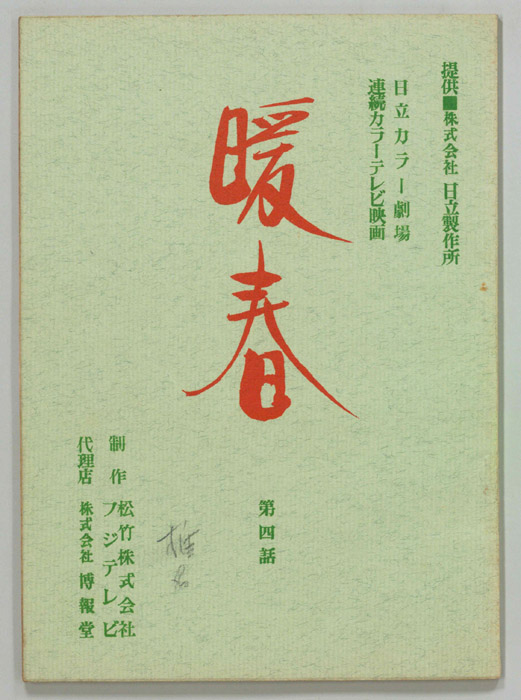 提供■株式会社 日立製作所
日立カラー劇場
連続カラーテレビ映画
暖春
第四話
制作 松竹株式会社
フジテレビ
代理店 株式会社 博報堂